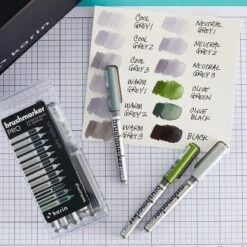 karin
COOL GREY 1
NEUTRAL GREY 1
COOL GREY 2
NEUTRAL GREY 2
COOL GREY 3
NEUTRAL GREY 3
WARM GREY 1
OLIVE GREEN
WARM GREY 2
OLIVE BLACK
WARM GREY 3
BLACK
brushmarker
PRO
karin
brushmarker
brushmarker